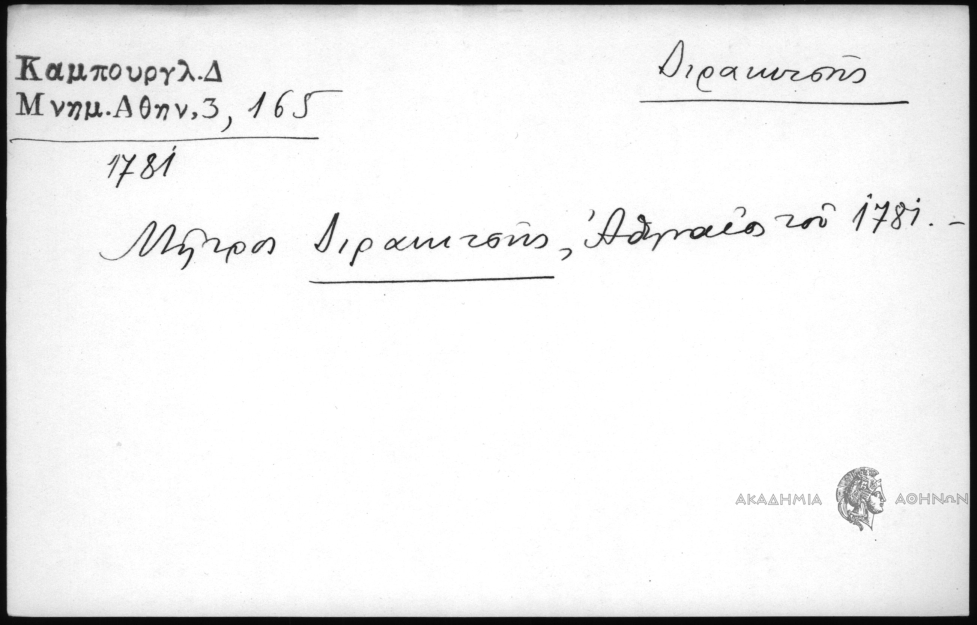 Καμπουργλ.Δ
Μνημ.Αθην.3, 165
Διρακιτσῆς
1781
Μῆτρος Διρακιτσῆς, Ἀθηναῖος τοῦ 1781.–
ΑΚΑΔΗΜΙΑ ΑΘΗΝΩΝ